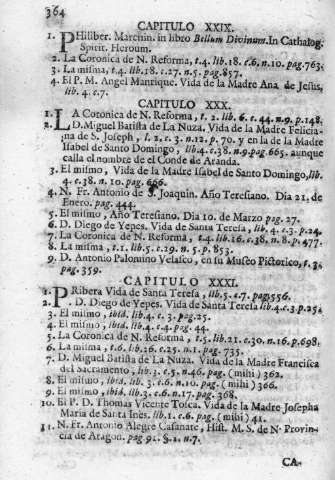 364
CAPITULO XXIX.
1. Philiber. Marchin. in libro Bellum Divinum. In Cathalog.
Spirit. Heroum.
2. La Coronica de N. Reforma, t.4. lib.18. c.6. n.10. pag.763.
3. La misma, t.4. lib.18. c.27. n.5. pag.857.
4. El P. M. Angel Manrique. Vida de la Madre Ana de Jesus,
lib.4. c.7.
CAPITULO XXX.
1. LA Coronica de N. Reforma, t. 2. lib. 6. c.44. n.9. p.148.
2. D. Miguel Batista de La Nuza. Vida de la Madre Felicia-
na de S. Joseph, l. 2. c. 3. n.12. p. 70. y en la de la Madre
Isabel de Santo Domingo, lib.4. c.38. n.9. pag.665. aunque
calla el nombre de el Conde de Aranda.
3. El mismo, Vida de la Madre Isabel de Santo Domingo, lib.
4. c.38. n.10. pag.666.
4. N. Fr. Antonio de S. Joaquin. Año Teresiano. Dia 21. de
Enero. pag.444.
5. El mismo, Año Teresiano. Dia 10. de Marzo pag.27.
6. D. Diego de Yepes. Vida de Santa Teresa, lib.4. c.3. p.24.
7. La Coronica de N. Reforma, t.4. lib.16. c.38. n.8. p.477.
8. La misma, t.1. lib.5. c.19. n.5. p.853.
9. D. Antonio Palomino Velasco, en su Museo Pictorico, t.3.
pag.359.
CAPITULO XXXI.
1. P Ribera Vida de Santa Teresa, lib.5. c.7. pag.556.
2. D. Diego de Yepes. Vida de Santa Teresa lib.4. c.3. p.25.
3. El mismo, ibid. lib.4. c.3. pag.25.
4. El mismo, ibid. lib.4. c.4. pag.44.
5. La Coronica de N. Reforma, t.5. lib.21. c.30. n.16. p.698.
6. La misma, t.6. lib.26. c.25. n.1. pag.735.
7. D. Miguel Batista de La Nuza. Vida de la Madre Francisca
del Sacramento, lib.3. c.5. n.46. pag. (mihi) 362.
8. El mismo, ibid. lib.3. c.6. n.10. pag. (mihi) 366.
9. El mismo, ibid. lib.3. c.6. n.17. pag.368.
10. El P. D. Thomas Vicente Tosca. Vida de la Madre Josepha
Maria de Santa Inès. lib.1. c.6. pag. (mihi) 41.
11. N. Fr. Antonio Alegre Casanate, Hist. M. S. de N. Provin-
cia de Aragon. pag 91. §.2. n.7.
CA-